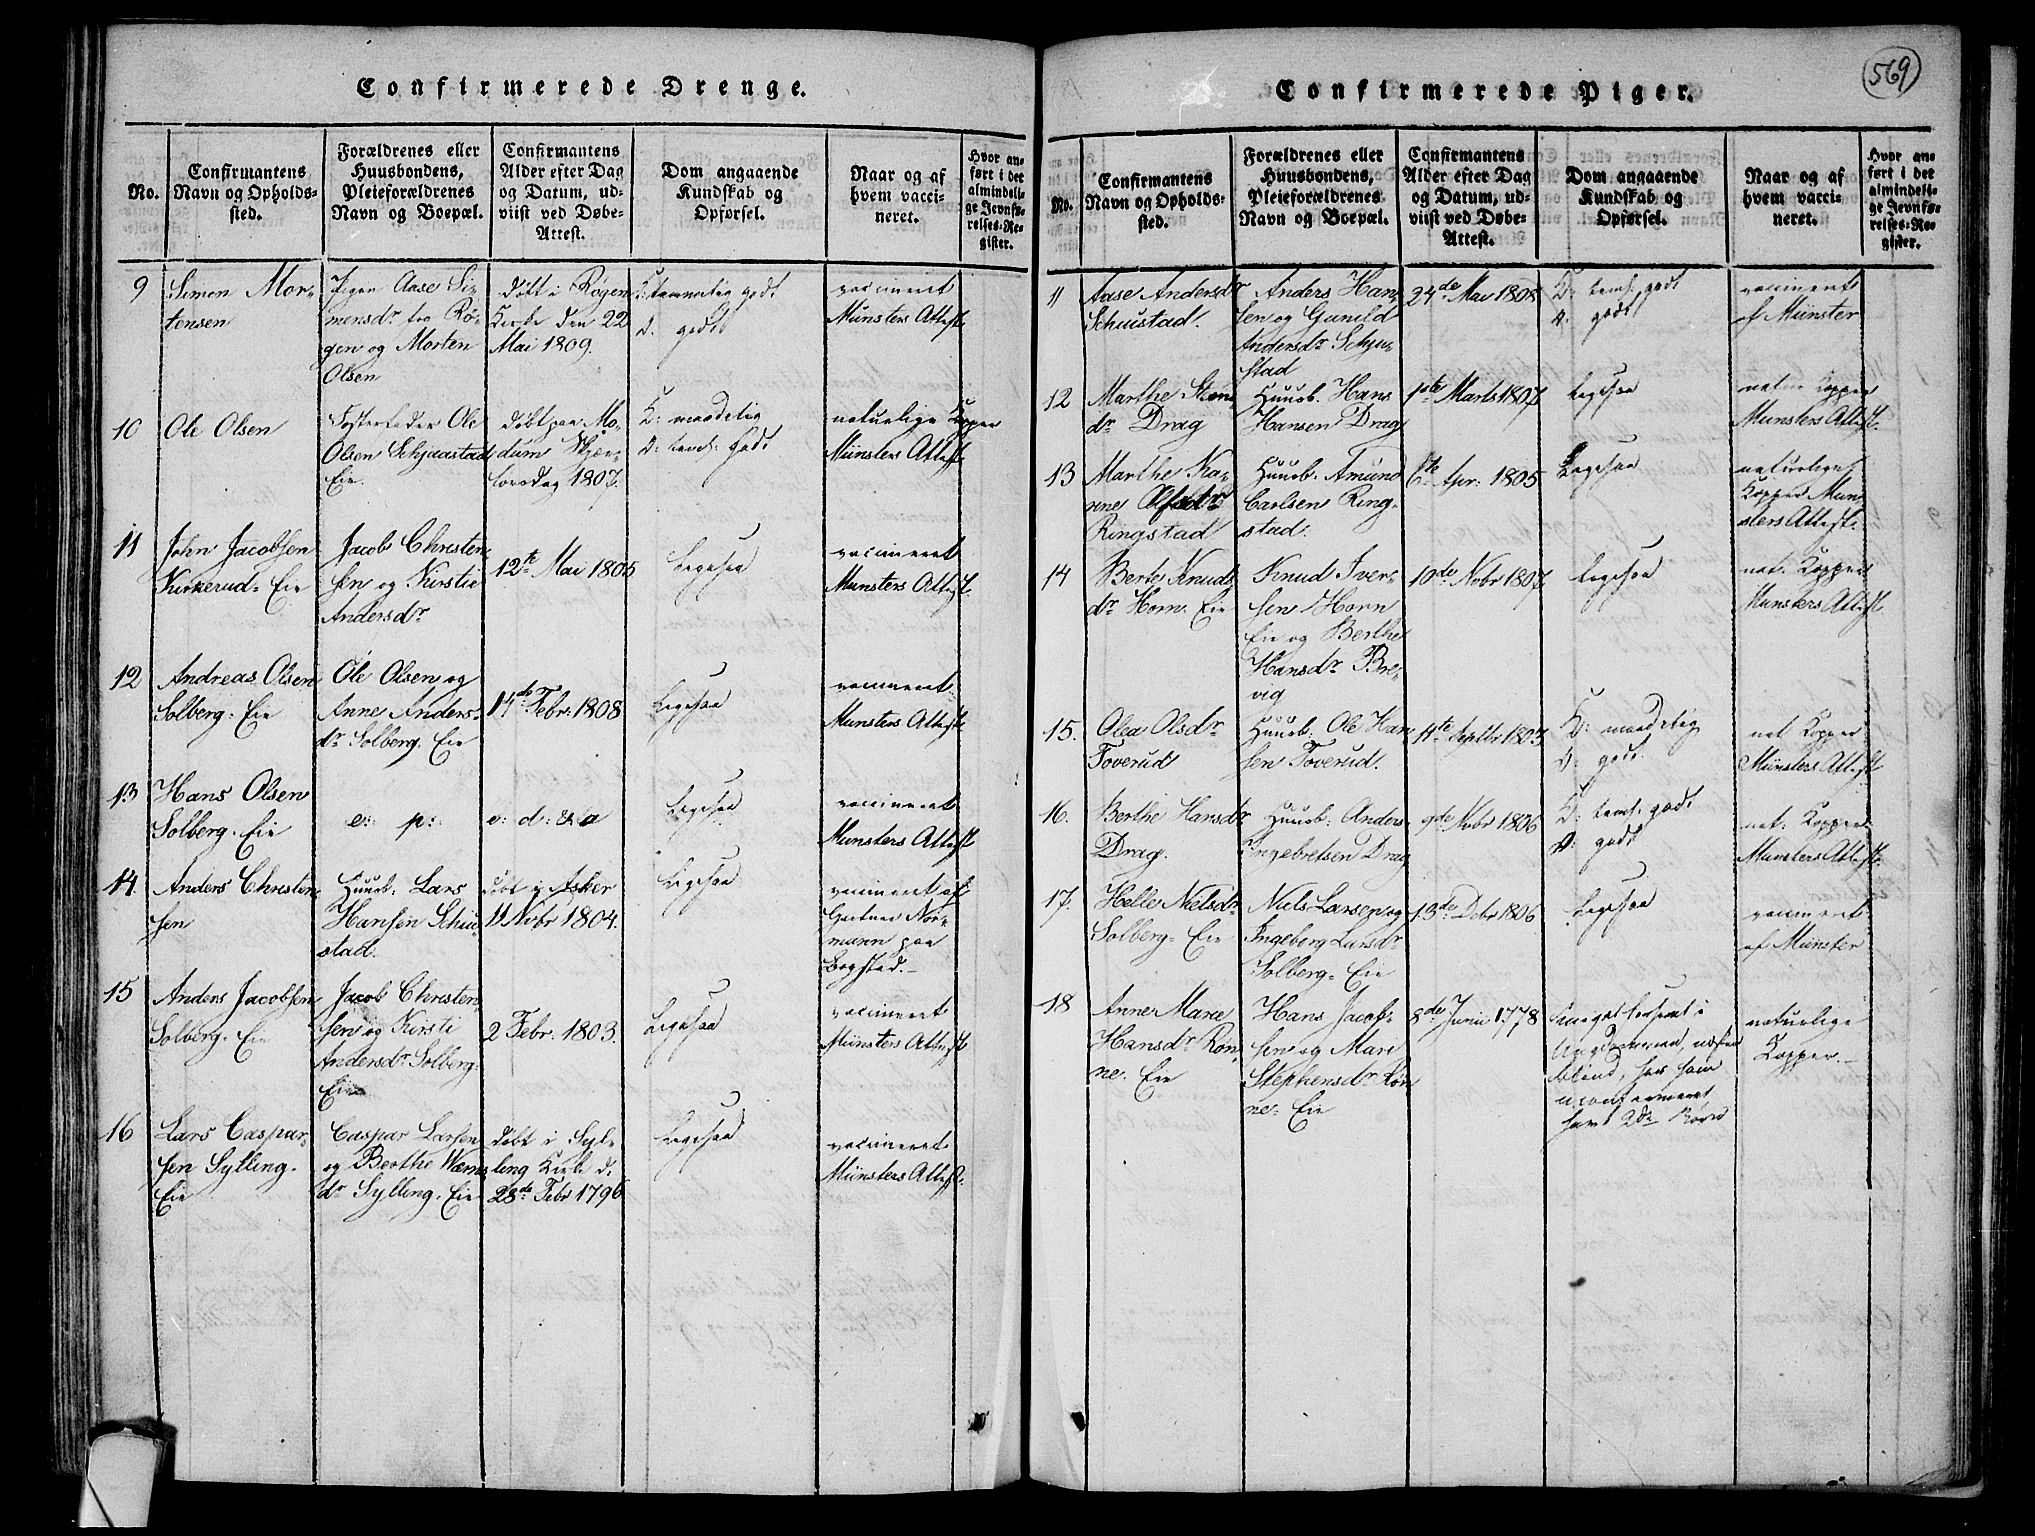 569
Confirmerede Drenge.
No.
Confirmantens
Navn og Opholds-
sted.
Forældrenes eller
Huusbondens,
Pleieforældrenes
Navn og Boepæl.
Confirmantens
Alder efter Dag
og Datum, ud-
viist ved Døbe-
Attest.
Dom angaaende
Kundskab og
Opførsel.
Naar og af
hvem vacci-
neret.
Hvor an-
ført i det
almindeli-
ge Jevnfø-
relses-Re-
gister.
9
Simon Mor-
tensen
Pigen Aase Si-
mensdr fra Rø-
gen og Morten
Olsen
døbt i Røgen
Kirke den 22
Mai 1809.
K: temmelig godt
O: godt
vaccineret
Münsters Attest
10
Ole Olsen
Fosterfader Ole
Olsen Schjaastad
Eie.
døbt paa Mo-
dum Skjær-
torsdag 1807.
K: maadelig
O: teml: Godt
naturlige Kopper
Münsters Attest
11
John Jacobsen
Kirkerud-Eie
Jacob Christen-
sen og Kirstie
Andersdr
12te Mai 1805
Ligesaa
vaccineret
Münsters Attest
12
Andreas Olsen
Solberg-Eie
Ole Olsen og
Anne Anders-
dr Solberg-Eie
14de Febr: 1808
Ligesaa
vaccineret
Münsters Attest
13
Hans Olsen
Solberg-Eie
e: p:
e: d: & a
Ligesaa
vaccineret
Münsters Attest
14
Anders Christen-
sen
Huusb: Lars
Hansen Schiu-
stad.
døbt i Asker
11 Nvbr 1804.
Ligesaa
vaccineret af
Gartner Nor-
mann paa
Bogstad.
15
Anders Jacobsen
Solberg-Eie
Jacob Christen-
sen og Kirsti
Andersdr Solberg-
Eie
2 Febr. 1803.
Ligesaa
vaccineret
Münsters Attest
16
Lars Caspar-
sen Sylling-
Eie
Caspar Larsen
og Berthe Werns-
dr Sylling-Eie
døbt i Syl-
ling Kirke d.
28de Febr 1796
Ligesaa
vaccineret
Münsters Attest.
Confirmerede Piger.
No.
Confirmantens
Navn og Opholds-
sted.
Forældrenes eller
Huusbondens,
Pleieforældrenes
Navn og Boepæl.
Confirmantens
Alder efter Dag
og Datum, ud-
viist ved Døbe-
Attest.
Dom angaaende
Kundskab og
Opførsel.
Naar og af
hvem vacci-
neret.
Hvor an-
ført i det
almindeli-
ge Jevnfø-
relses-Re-
gister.
11
Aase Andersdr
Schiustad.
Anders Han-
sen og Gunild
Andersdr Schju-
stad
24de Mai 1808
K: teml: godt
O: godt
vaccineret
af Münster
12
Marthe Steni-
dr Drag
Huusb. Hans
Hansen Drag
1ste Marts 1807
Ligesaa
natur Kopper
Münsters Attest.
13
Marthe Ka-
rine
Ringstad
Huusb. Amund
Carlsen Ring-
stad.
6te Apr: 1805
Ligesaa
naturlige
Kopper Mün-
sters Attest.
14
Berte Knuds-
dr Horn-Eie
Knud Iver-
sen Horn
Eie og Berthe
Hansdr Bre-
vig
10de Nvbr 1807
Ligesaa
nat. Kopper
Münsters Attest.
15.
Olea Olsdr
Toverud
Huusb: Ole Han-
sen Toverud.
11te Septbr 1807
K: maadelig
O: godt.
nat Kopper
Münsters Attest
16.
Berthe Hansdr
Drag.
Huusb: Anders
Ingebretsen Drag
9de Nvbr 1806
K: teml: godt
O: godt
nat: Kopper
Münsters Attest.
17.
Helle Nielsdr
Solberg-Eie
Niels Larsen og
Ingeborg Larsdr
Solberg-Eie
13de Dcbr 1806
Ligesaa
vaccineret
af Münster
18
Anne Marie
Hansdr Røn-
ne-Eie
Hans Jacob-
sen og Mari
Stephensdr Røn-
ne-Eie
8de Junii 1778
Ungdommen, næsten
blind, har som
uconfirmeret
havt 2de Børn
naturlige
Kopper.